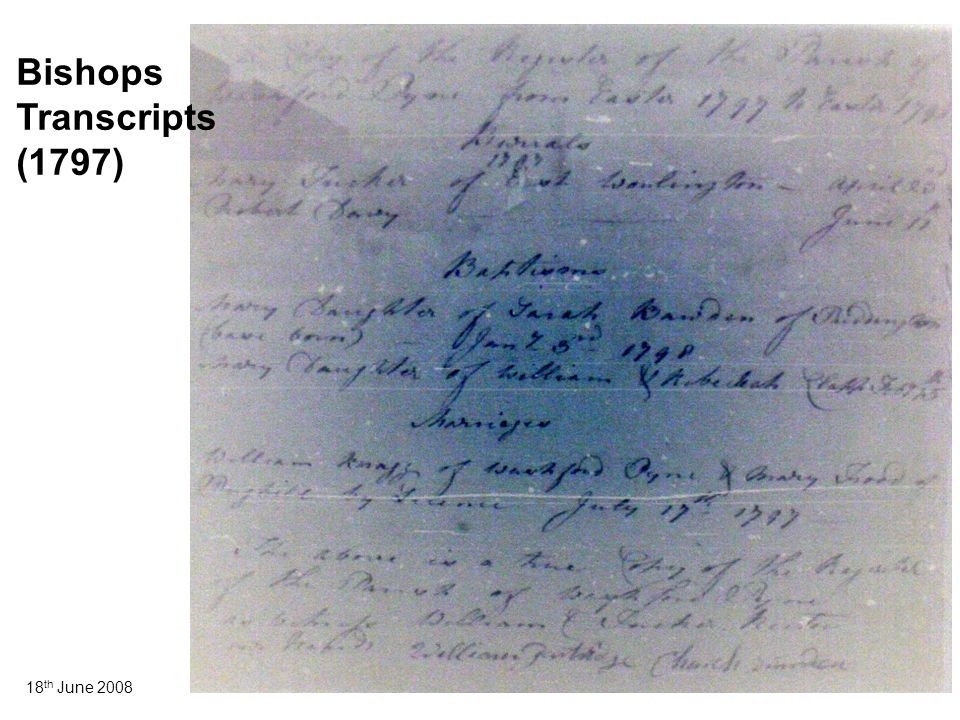 Bishops
Transcripts
(1797)
Copy of the Register of the Parish of
Pyne from Easter 1797 to Easter 1798
Burrals
1797
Mary Tucker of East Woulington – April 23d
Robert Davy June 11th
Baptisms
Mary Daughter of Sarah Bawden of Puddington
(base born) – Jany 3rd 1798
Mary Daughter of William & Rebeckah Clapp
Marriages
William of Washford Pyne & Mary
by July 17th 1797
The above is a true Copy of the Register
of the Parish of Washford Pyne
as witness William Tucker
our hands William Church warden
18th June 2008